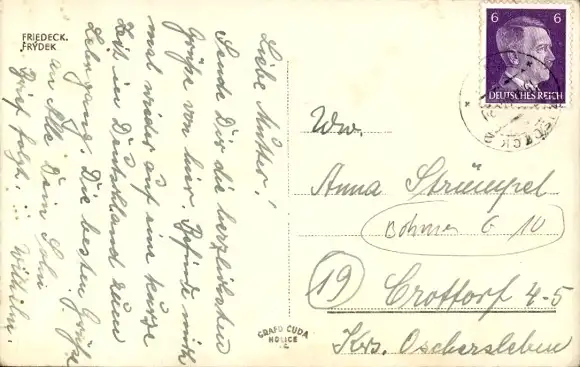 FRIEDECK.
FRÝDEK
Liebe Mutter!
Sende Dir die herzlichsten
Grüße von hier. Befinde mich
mal wieder auf eine kurze
Zeit in Deutschland zum
Lehrgang. Die besten Grüße
an Alle Dein Sohn
Wilhelm.
Brief folgt.
6 6
DEUTSCHES REICH
Ww.
Anna Strümpel
Böhmen 6 10
19 Crottorf 4-5
Krs. Oschersleben
GRAFO ČUDA
HOLICE